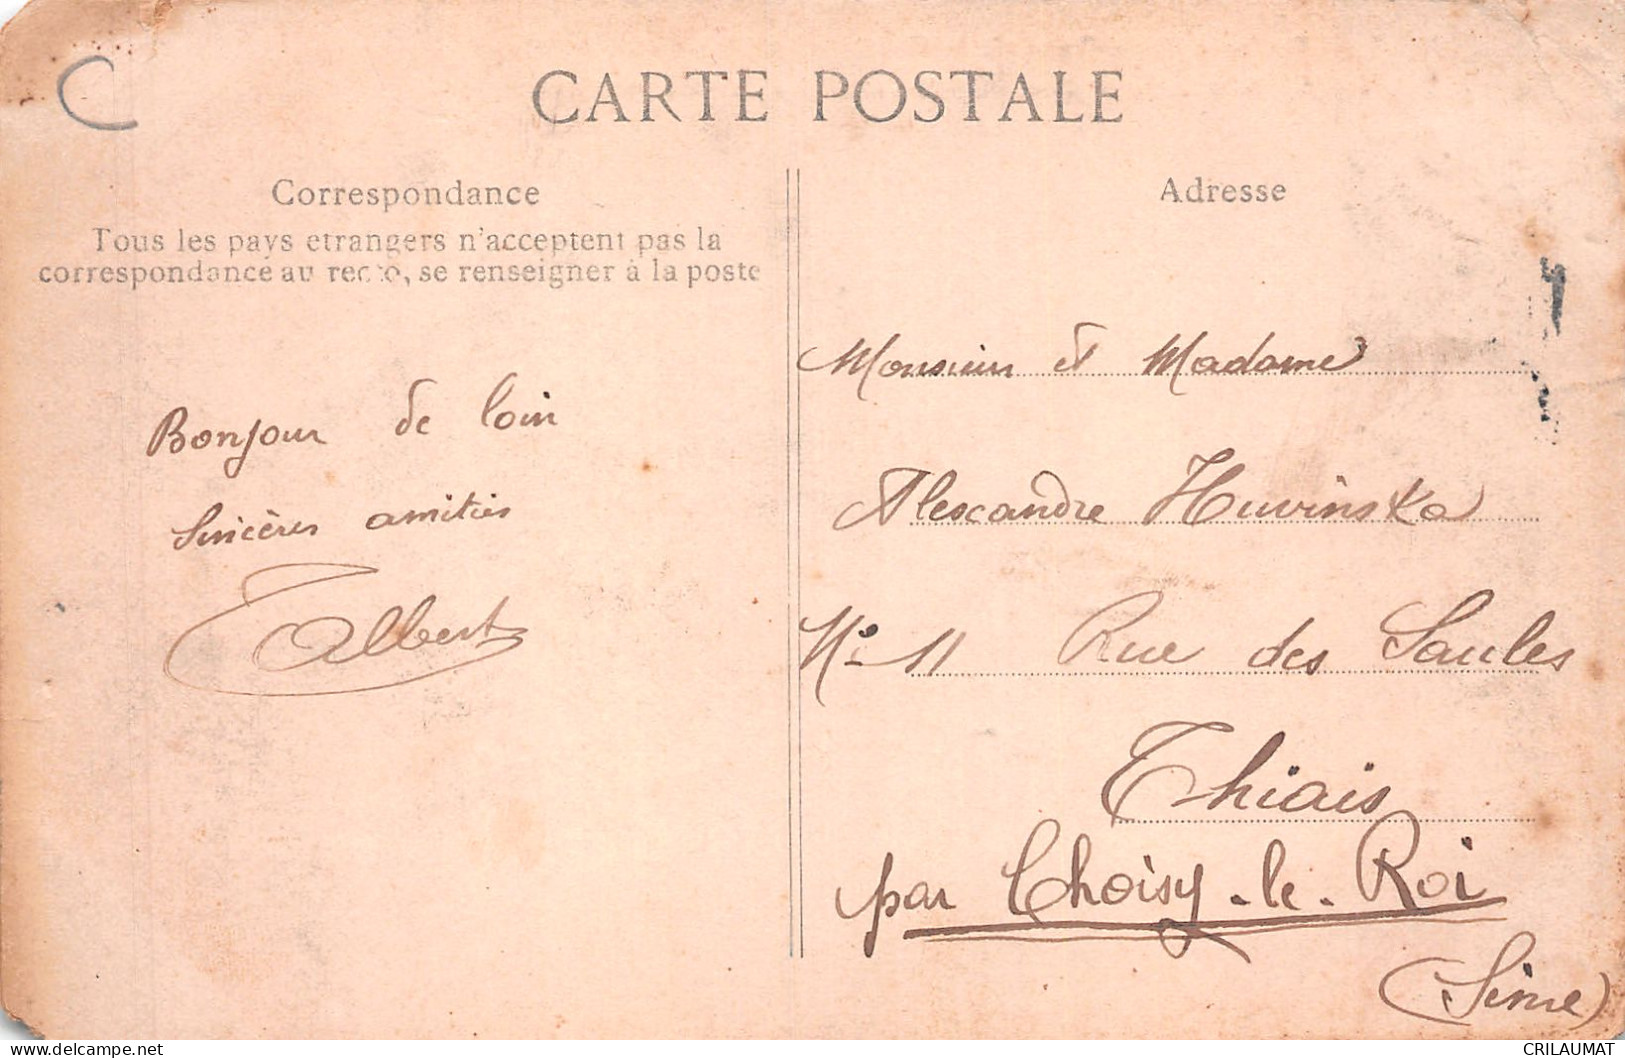 CARTE POSTALE
Correspondance
Tous les pays etrangers n'acceptent pas la
correspondance au recto, se renseigner à la poste
Bonjour de loin
Sincères amitiés
Albert
Adresse
Monsieur et Madame
Alexandre Huvinska
No 11 Rue des Saules
Thiais
par Choisy-le-Roi
(Seine)
CRILAUMAT